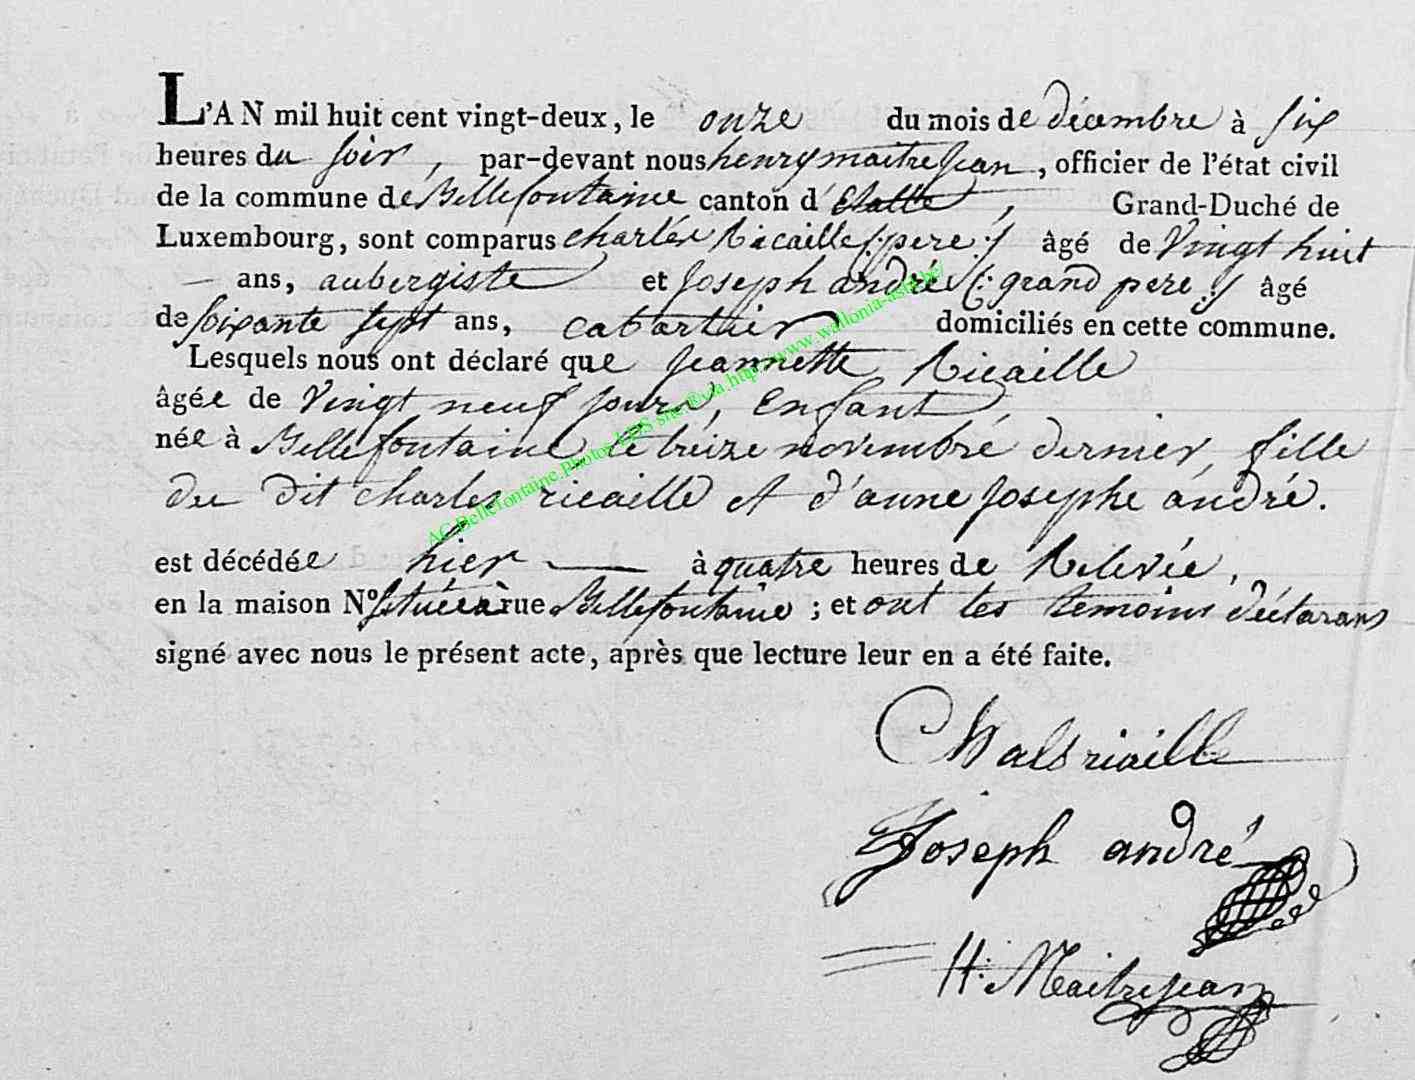 L'AN mil huit cent vingt-deux, le onze du mois de décembre à six
heures du soir, par-devant nous henry maitrejean, officier de l'état civil
de la commune de Bellefontaine canton d'Etalle, Grand-Duché de
Luxembourg, sont comparus charles Ricaille (:pere:) âgé de Vingt huit
— ans, aubergiste et Joseph andré (:grand pere:) âgé
de soixante sept ans, cabartier domiciliés en cette commune.
Lesquels nous ont déclaré que Jeannette Ricaille
âgée de Vingt neuf jours, Enfant
née à Bellefontaine le treize novembre dernier, fille
du dit charles ricaille et d'anne Josephe andré.
est décédée hier — à quatre heures de Relevée,
en la maison N° située à rue Bellefontaine ; et ont les temoins déclarans
signé avec nous le présent acte, après que lecture leur en a été faite.
ricaille
Joseph andré
H: Maitrejean
AC Bellefontaine.Photos LDS site @via.http://www.wallonia-asbl.be/